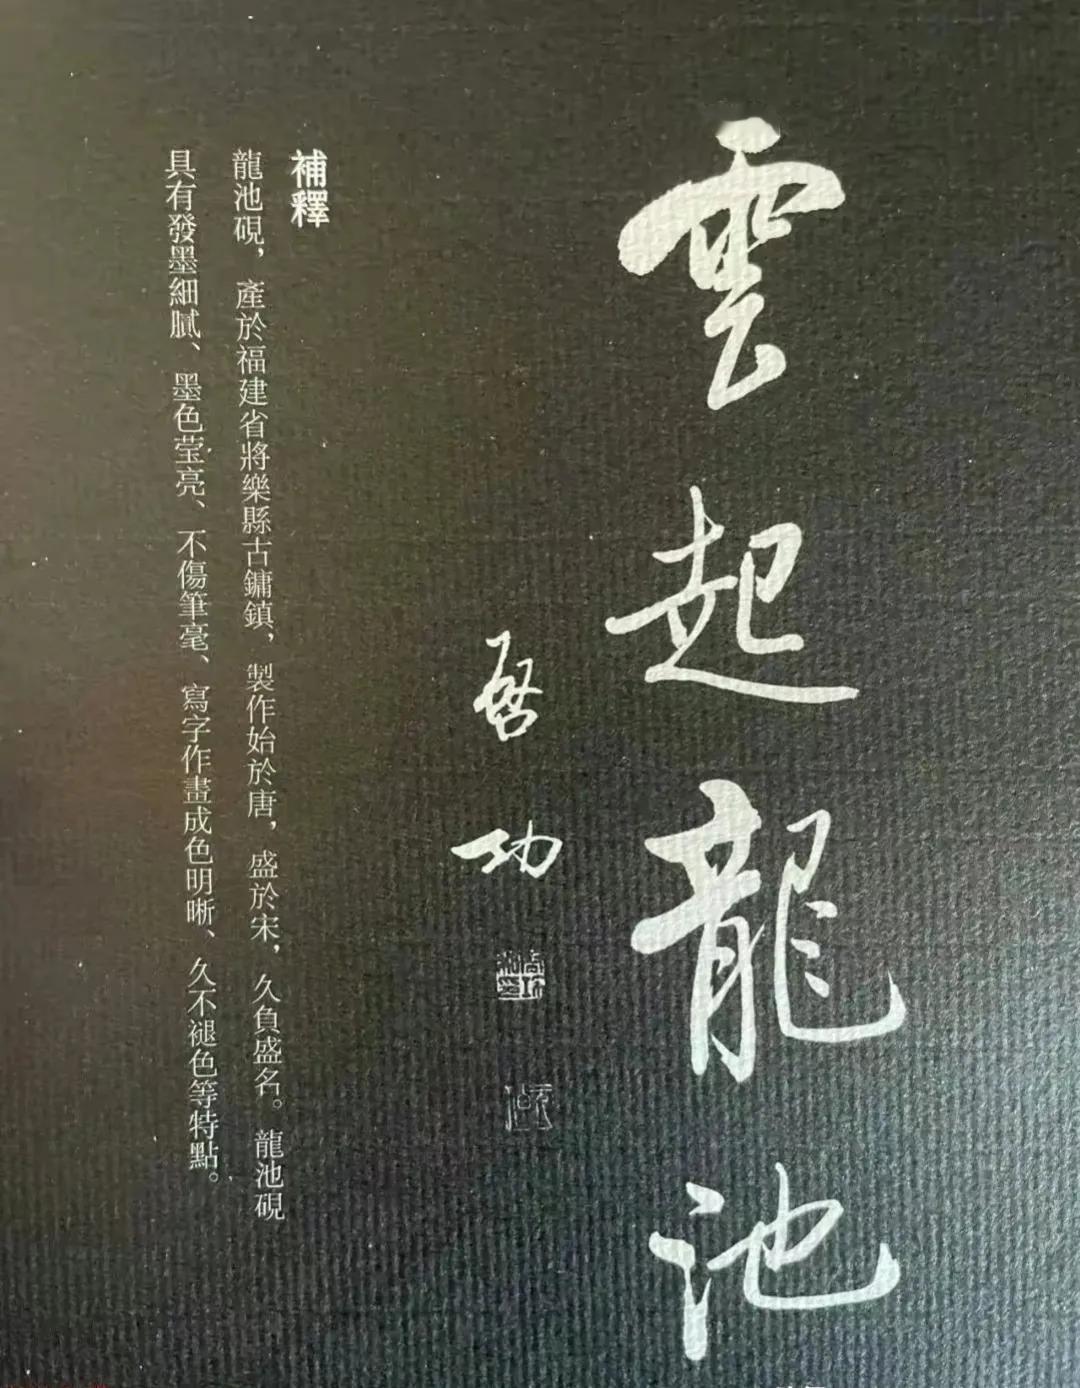 雲起龍池
啓功
補釋
龍池硯，產於福建省將樂縣古鏞鎮，製作始於唐，盛於宋，久負盛名。龍池硯
具有發墨細膩、墨色莹亮、不傷筆毫、寫字作畫成色明晰、久不褪色等特點。